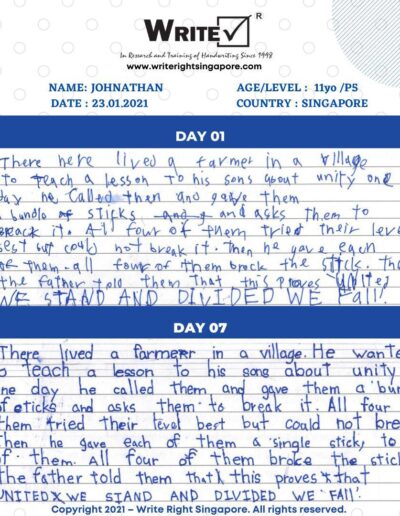 WRITE
R
In Research and Training of Handwriting Since 1998
www.writerightsingapore.com
NAME: JOHNATHAN
AGE/LEVEL : 11yo /P5
DATE : 23.01.2021
COUNTRY : SINGAPORE
DAY 01
There here lived a farmer in a village
to teach a lesson to his sons about unity one
day he Called them and gave them
a bundle of sticks and and asks them to
break it. All four of them tried their leve
best but could not break it. Then he gave each
of them. all four of them brock the stick. The
the father told them That this proves United
WE STAND AND DIVIDED WE Fall!
DAY 07
There lived a farmer in a village. He wante
o teach a lesson to his sons about unity
ne day he called them and gave them a bun
of sticks and asks them to break it. All four
them tried their level best but could not bre
hen he gave each of them a single stick, to
of them. All four of them broke the stick
the father told them that this proves that
UNITED WE STAND AND DIVIDED WE FAll!
Copyright 2021 – Write Right Singapore. All rights reserved.